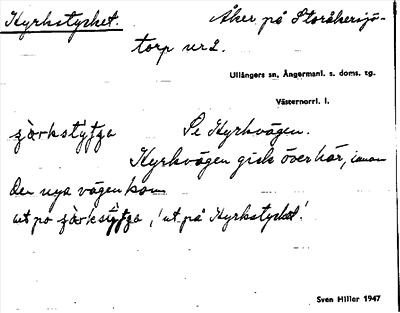 Kyrkstycket. Åker på Storåkersjö-
torp nr 2.
Ullångers sn, Ångermanl. s. doms. tg.
Västernorrl. l.
Se Kyrkvägen.
Kyrkvägen gick över här, innan
den nya vägen kom
ut po , 'ut på Kyrkstycket'.
Sven Hiller 1947